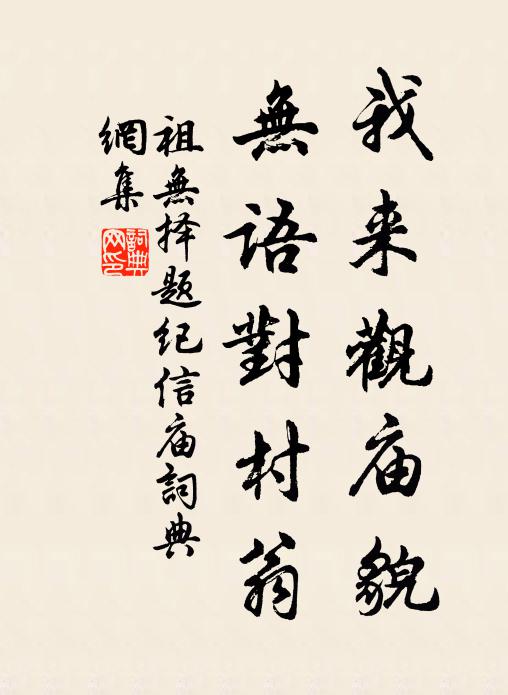 我来觀庙貌
無语對村翁
祖無择题纪信庙詞典
網集
詞典網印